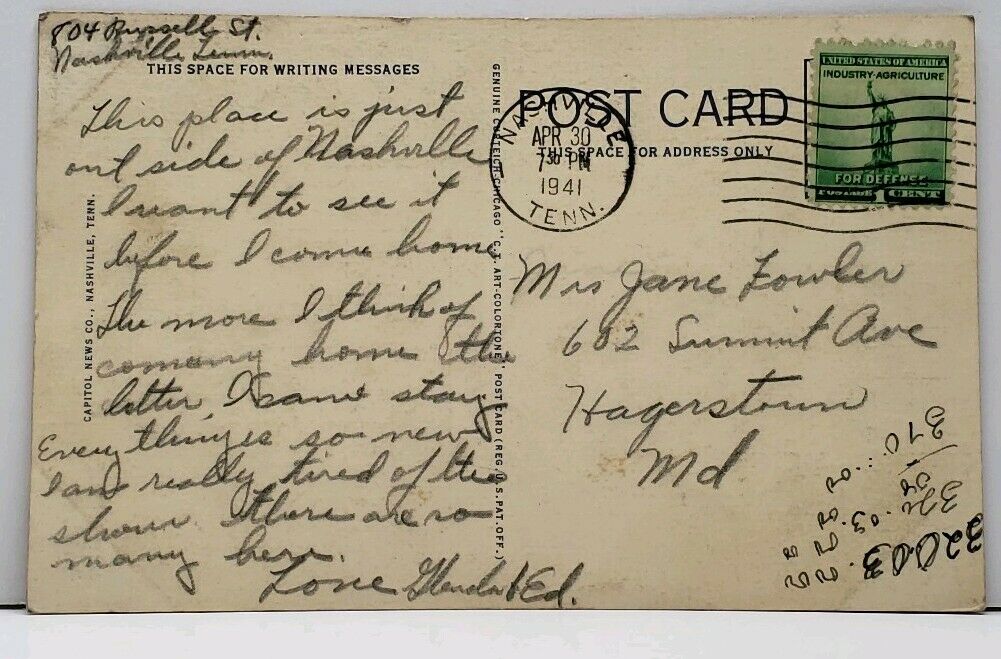 804 Russell St.
Nashville Tenn.
THIS SPACE FOR WRITING MESSAGES
This place is just
out side of Nashville
I want to see it
before I come home
The more I think of
comany home the
better I can stay
Every things so new
I am really tired of the
show there are so
many here.
Love Glenda & Ed.
CAPITOL NEWS CO., NASHVILLE, TENN.
GENUINE CURTEICH-CHICAGO "C.T. ART-COLORTONE" POST CARD (REG. U.S. PAT. OFF.)
POST CARD
THIS SPACE FOR ADDRESS ONLY
NASHVILLE
APR 30
7 30 PM
1941
TENN.
UNITED STATES OF AMERICA
INDUSTRY-AGRICULTURE
FOR DEFENSE
POSTAGE 1 CENTS
Mrs Jane Fowler
602 Summit Ave
Hagerstown
Md
32003